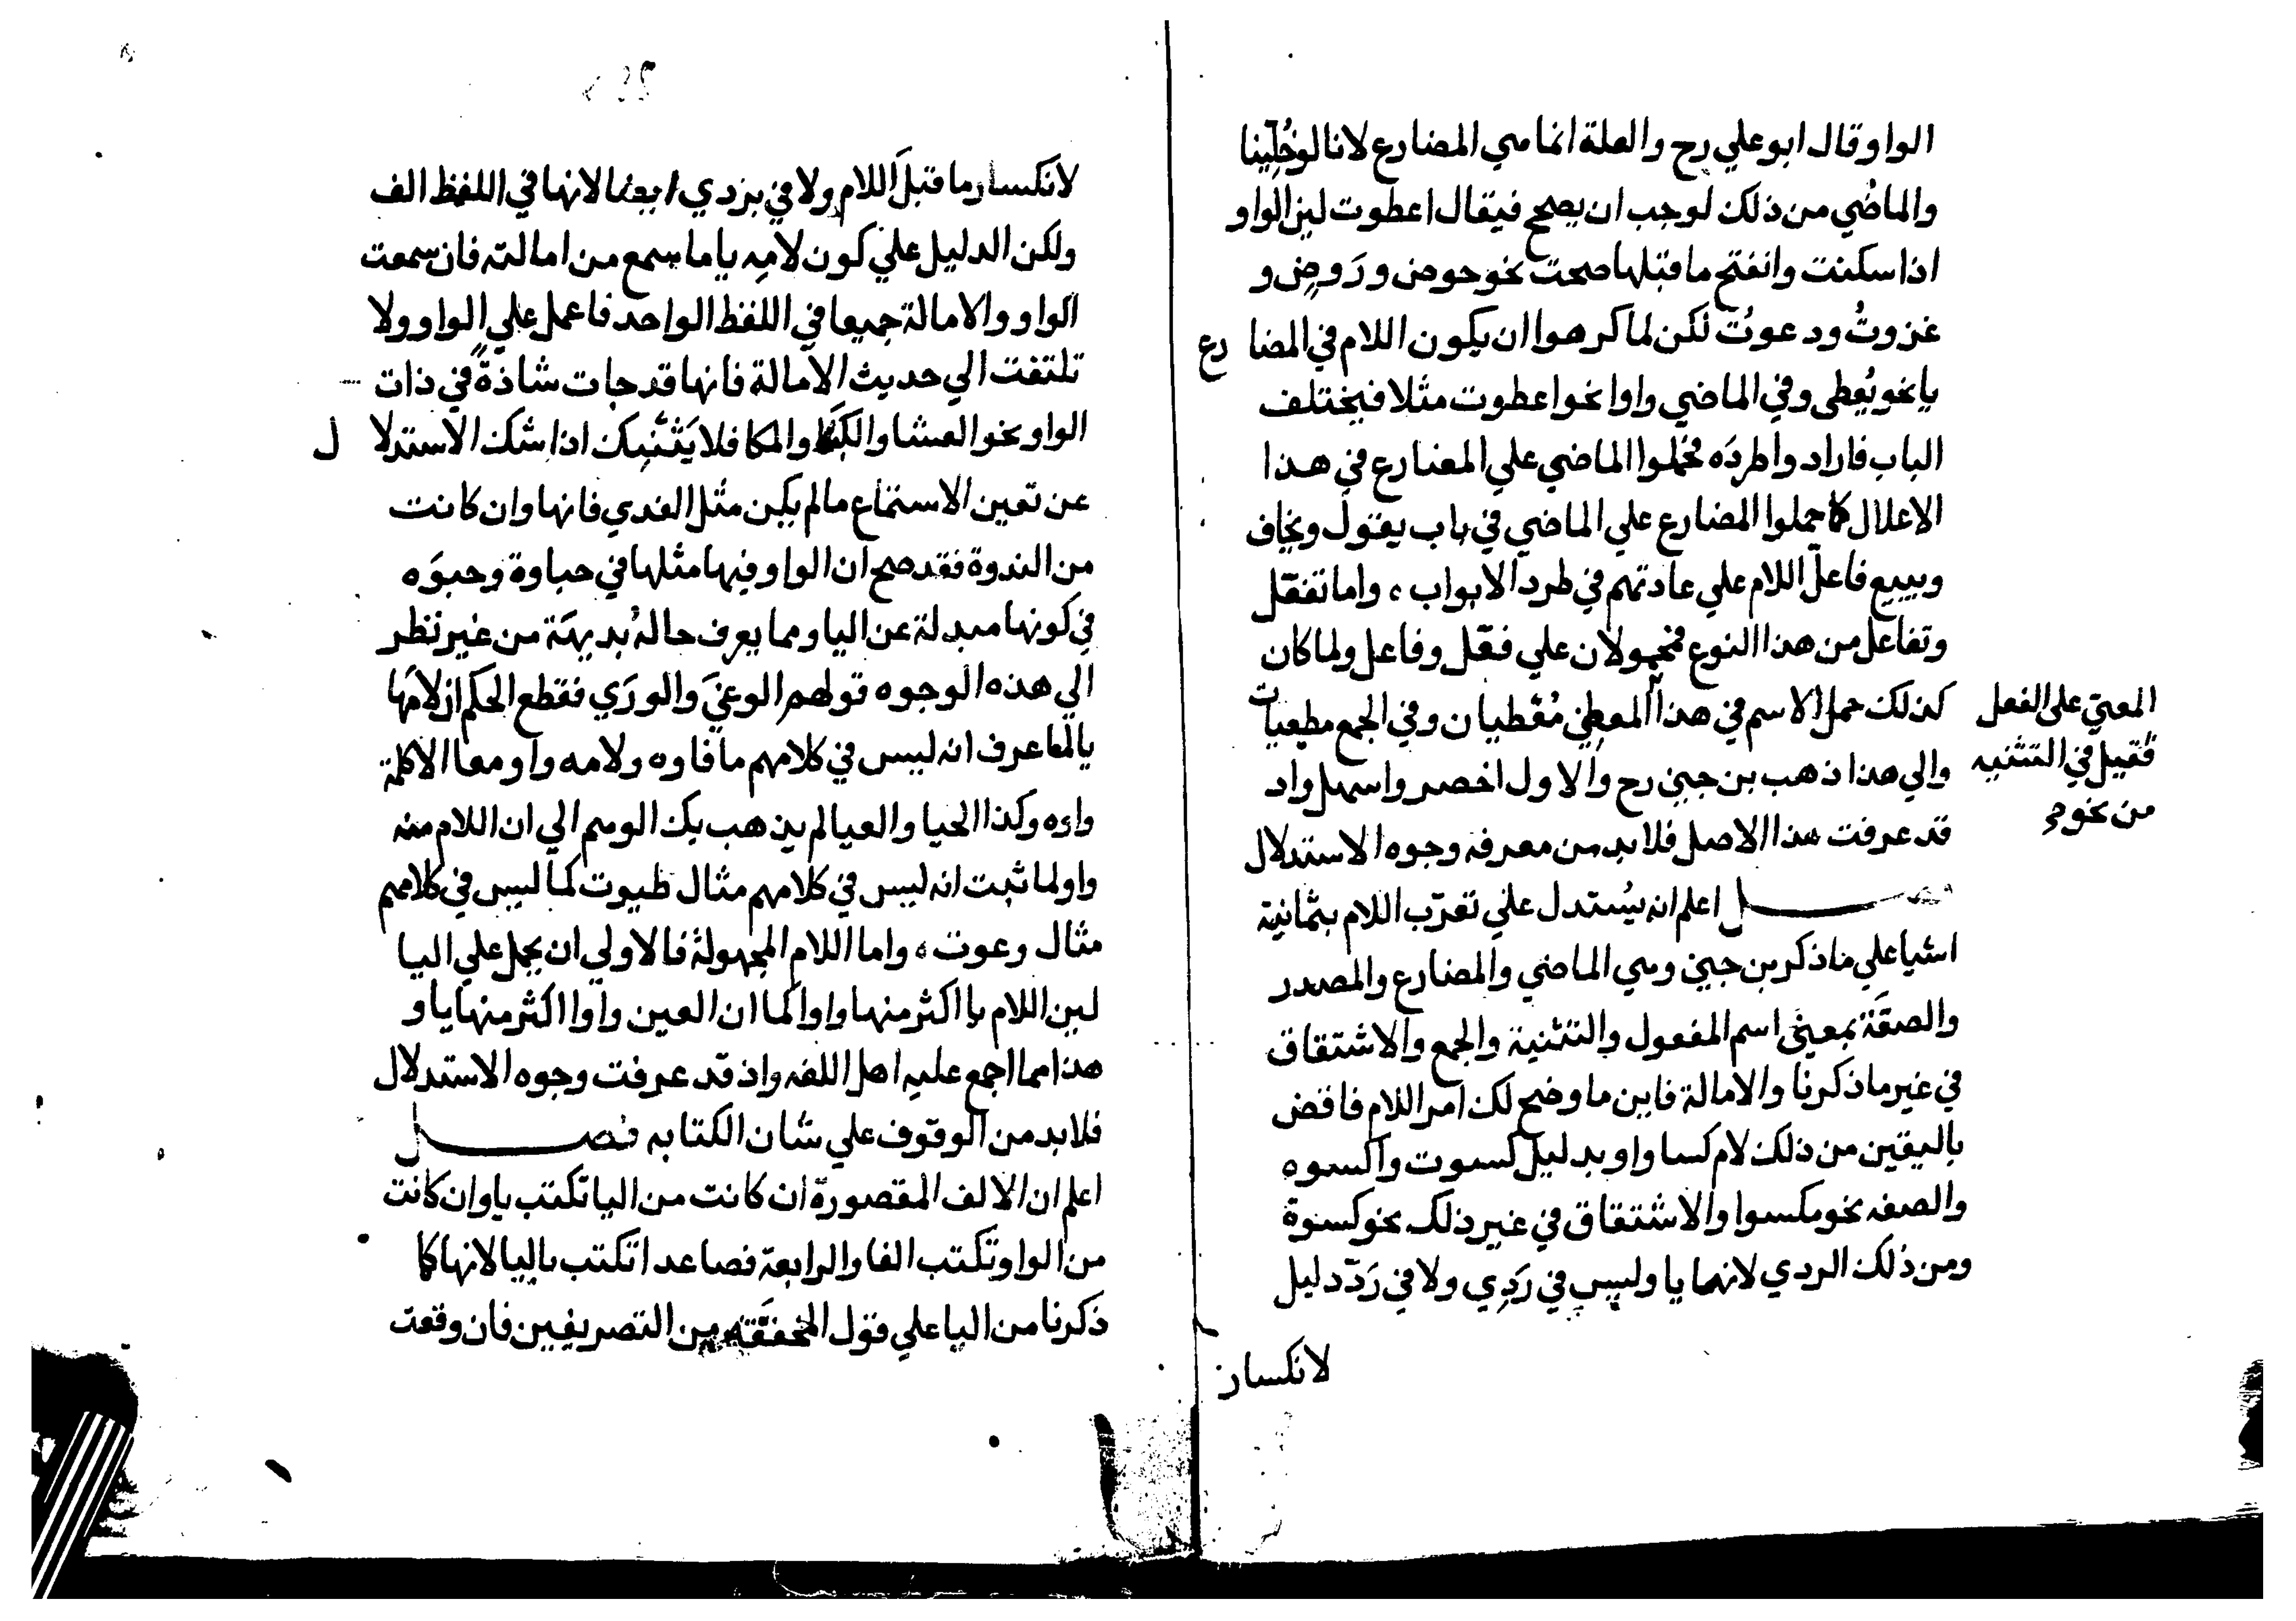 الواو قال ابو علي رح والعلة انما هي المضارع لانا لو خُلِّينا
والماضي من ذلك لوجب ان يصح فيقال اعطوت لين الواو
اذا سكنت وانفتح ما قبلها صحت نحو حوض و رَوضٍ و
غزوتُ ودعوتُ لكن لما كرهوا ان يكون اللام في المضارع
يا نحو يُعطى وفي الماضي واوا نحو اعطوت مثلا فيختلف
الباب فاراد واطردَه فحملوا الماضي علي المضارع في هذا
الاعلال كما حملوا المضارع علي الماضي في باب يقول ويخاف
ويبيع فاعلّ اللام علي عادتهم في طرد الابواب ، واما تفعّل
وتفاعل من هذا النوع فمحمولان علي فعّل وفاعل ولما كان
كذلك حمل الاسم في هذا المعطي مُعْطيان وفي الجمع معطيات
والي هذا ذهب بن جني رح والاول اخصر واسهل واد
قد عرفت هذا الاصل فلا بد من معرفه وجوه الاستدلال
فصل اعلم انه يُستدل علي تعرّب اللام بثمانية
اشيا علي ما ذكر بن جني وهي الماضي والمضارع والمصدر
والصفَة بمعني اسم المفعول والتثنية والجمع والاشتقاق
في غير ما ذكرنا والامالة فاين ما وضح لك امر اللام فاقض
باليقين من ذلك لام كسا واو بدليل كسوت واكسوه
والصفه نحو مكسوا والاشتقاق في غير ذلك نحو كسوة
ومن ذلك الردي لانهما يا وليس في رَدِي ولا في رَدّ دليل
لانكسار
المعتي على الفعل
فقيل في التثنيه
من نحو
لانكسار ما قبلَ اللام ولا في يزدي ايضا لانها في اللفظ الف
ولكن الدليل علي كون لامِه يا ما سمع من امالته فان سمعت
الواو والامالة جميعا في اللفظ الواحد فاعمل علي الواو ولا
تلتفت الي حديث الامالة فانها قد جات شاذةً في ذات
الواو نحو العشا والكبا والمكا فلا يَثْنِيك اذا شك الاستدلال
عن تعين الاستماع ما لم يكن مثل الفدي فانها وان كانت
من الندوة فقد صح ان الواو فيها مثلها في حباوة وحبوَه
في كونها مبدلة عن اليا ومما يعرف حالهُ بديهَة من غير نظر
الي هذه الوجوه قولهم الوغيَ والورَي فقطع الحكم ان لامَها
يا لما عرف انه ليس في كلامهم ما فاوه ولامه واو معا الا كلمة
واوه وكذا الحيا والعيا لم يذهب بك الوهم الي ان اللام منه
واو لما ثبت انه ليس في كلامهم مثال طيوت كما ليس في كلامهم
مثال وعوت ، واما اللام المجهولة فالاولي ان يحمل علي اليا
لين اللام يا اكثر منها واوا كما ان العين واوا اكثر منها يا و
هذا مما اجمع عليه اهل اللغه واذ قد عرفت وجوه الاستدلال
فلا بد من الوقوف علي شان الكتابه فصل
اعلم ان الالف المقصورة ان كانت من اليا تكتب يا وان كانت
من الواو تكتب الفا والرابعة فصاعدا تكتب باليا لانها كما
ذكرنا من اليا علي قول المحققه من التصريفين فان وقعت